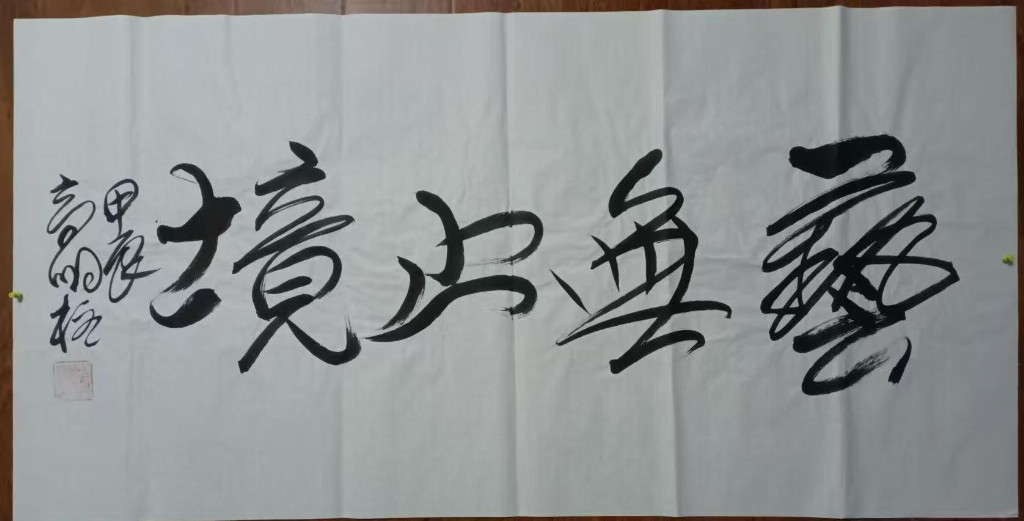 藝無止境
甲辰
高明格